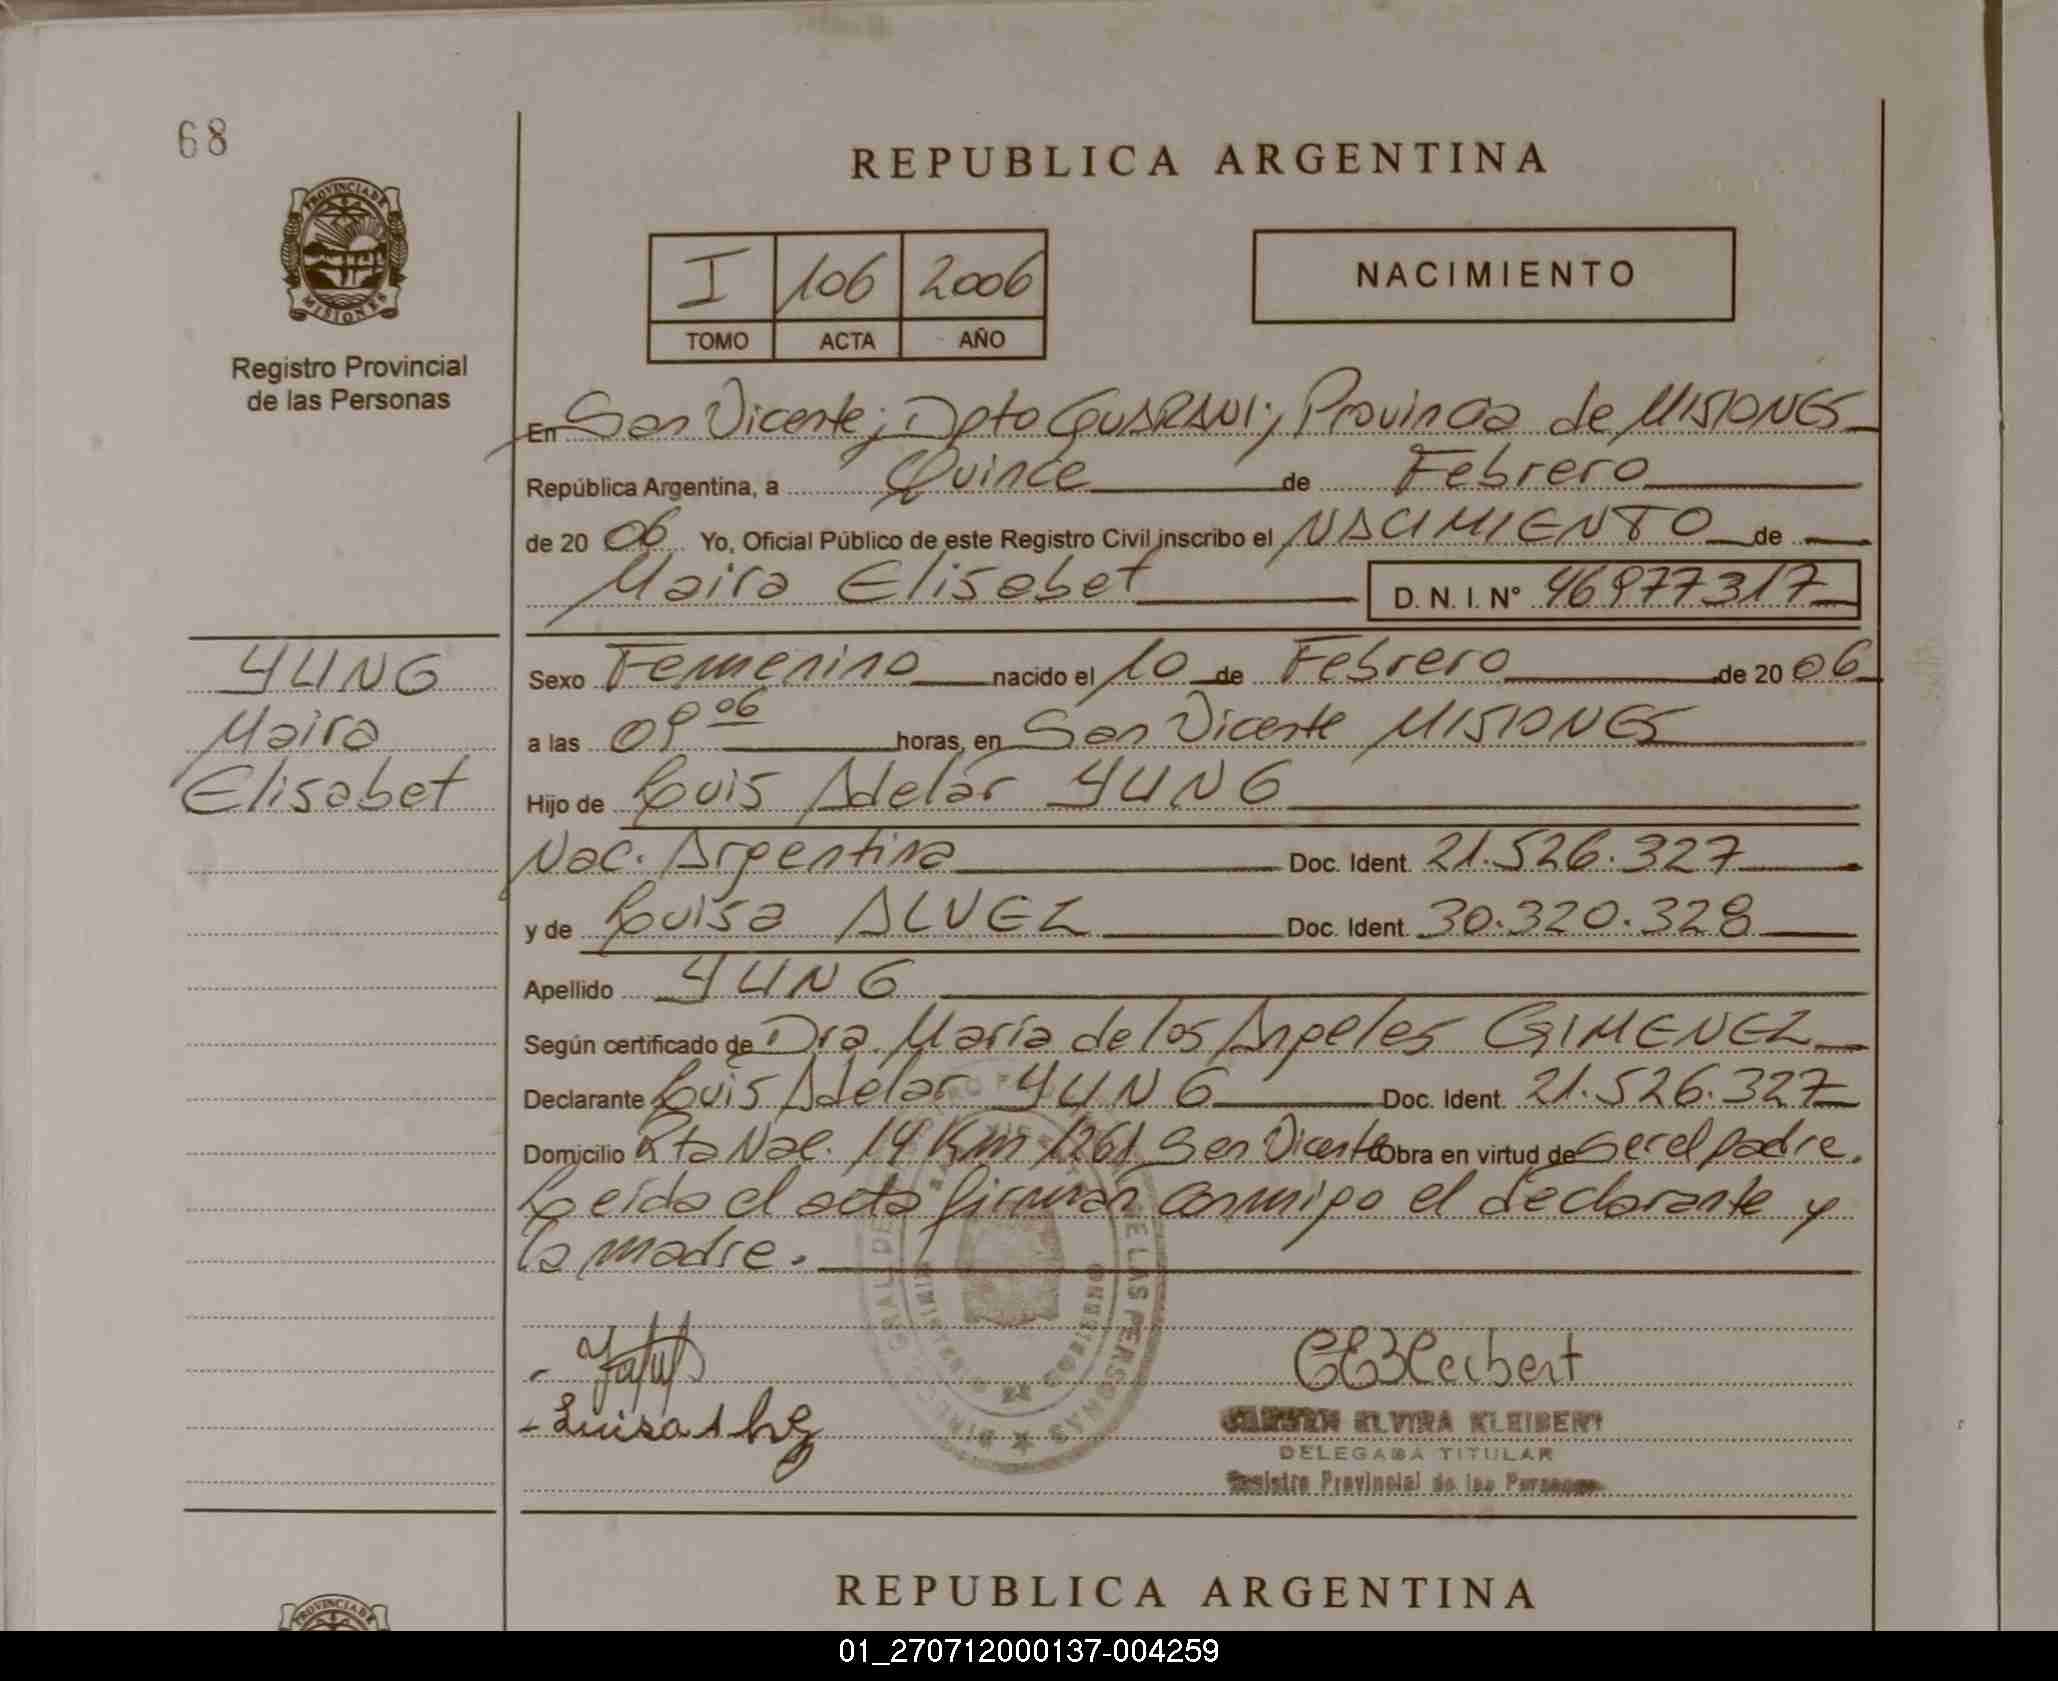 68
PROVINCIA DE
MISIONES
Registro Provincial
de las Personas
REPUBLICA ARGENTINA
I 106 2006
TOMO ACTA AÑO
NACIMIENTO
En San Vicente; Dpto GUARANI; Provincia de MISIONES
República Argentina, a Quince de Febrero
de 20 06 Yo, Oficial Público de este Registro Civil inscribo el NACIMIENTO de
Maira Elisabet D. N. I. N° 46977317
YUNG
Maira
Elisabet
Sexo Femenino nacido el 10 de Febrero de 20 06
a las 09 06 horas, en San Vicente MISIONES
Hijo de Luis Adelar YUNG
Nac. Argentina Doc. Ident. 21.526.327
y de Luisa ALVEZ Doc. Ident. 30.320.328
Apellido YUNG
Según certificado de Dra. María de los Angeles GIMENEZ
Declarante Luis Adelar YUNG Doc. Ident. 21.526.327
Domicilio Rta Nac. 14 Km 1261 San Vicente Obra en virtud de ser el padre.
Leída el acta firman conmigo el declarante y
la madre.
DE LAS PERSONAS
CEKleibert
Luisa
CARMEN ELVIRA KLEIBERT
DELEGADA TITULAR
Registro Provincial de las Personas
REPUBLICA ARGENTINA
PROVINCIA DE
01_270712000137-004259